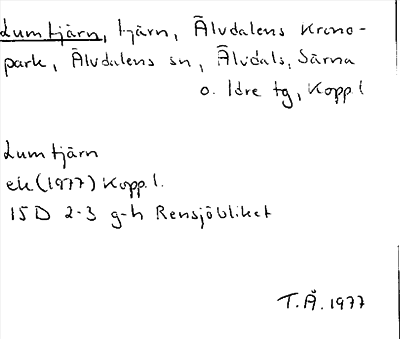 Lumtjärn, tjärn, Älvdalens krono-
park, Älvdalens sn, Älvdals, Särna
o. Idre tg, Kopp.l
Lumtjärn
ek (1977) Kopp.l.
15D 2-3 g-h Rensjöbliket
T.Å. 1977